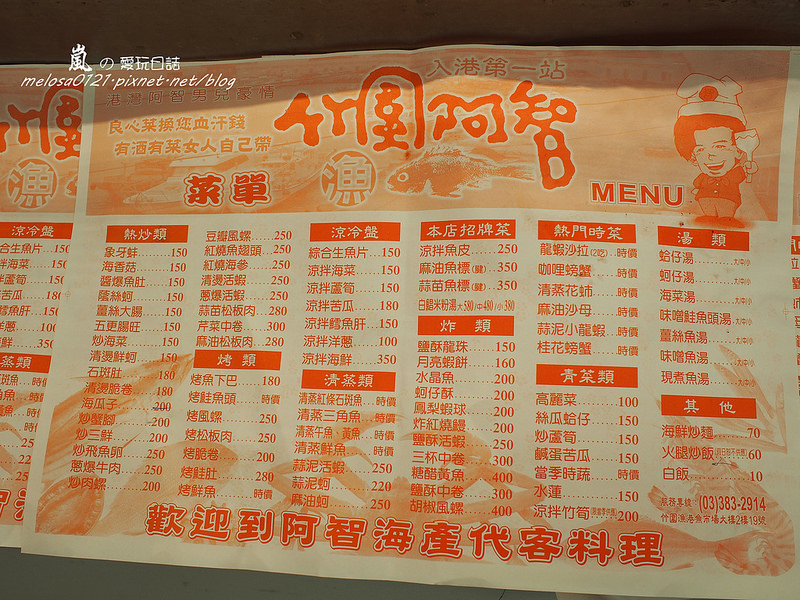 嵐の愛玩日誌
melosa0121.pixnet.net/blog
入港第一站
港灣阿智男兒豪情
良心菜換您血汗錢
有酒有菜女人自己帶
竹圍漁阿智
菜單
MENU
熱炒類
象牙蚌......150
海香菇......150
醬爆魚肚......150
蔭絲蚵......150
薑絲大腸......150
五更腸旺......150
炒海菜......150
清燙鮮蚵......150
石斑肚......180
清燙脆卷......180
海瓜子......200
炒蟹腳......200
炒三鮮......200
炒飛魚卵......250
蔥爆牛肉......250
炒肉螺......200
豆瓣風螺......250
紅燒魚翅頭......250
紅燒海參......250
清燙活蝦......250
蔥爆活蝦......250
蒜苗松板肉......280
芹菜中卷......300
麻油松板肉......280
烤類
烤魚下巴......180
烤鮭魚頭......時價
烤風螺......250
烤松板肉......250
烤脆卷......200
烤鮭肚......280
烤鮮魚......時價
涼冷盤
綜合生魚片......150
涼拌海菜......150
涼拌蘆筍......150
涼拌苦瓜......180
涼拌鱈魚肝......150
涼拌洋蔥......100
涼拌海鮮......350
清蒸類
清蒸紅條石斑魚......時價
清蒸三角魚......時價
清蒸午魚、黃魚......時價
清蒸鮮魚......時價
蒜泥活蝦......250
蒜泥蚵......220
麻油蚵......250
本店招牌菜
涼拌魚皮......250
麻油魚標(鰾)......350
蒜苗魚標(鰾)......350
白鯧米粉湯大580/中480/小380
炸類
鹽酥龍珠......150
月亮蝦餅......160
水晶魚......200
蚵仔酥......200
鳳梨蝦球......200
炸紅燒鰻......200
鹽酥活蝦......250
三杯中卷......300
糖醋黃魚......400
鹽酥中卷......300
胡椒風螺......400
熱門時菜
龍蝦沙拉(2吃)......時價
咖哩螃蟹......時價
清蒸花蚺......時價
麻油沙母......時價
蒜泥小龍蝦......時價
桂花螃蟹......時價
青菜類
高麗菜......100
絲瓜蛤仔......150
炒蘆筍......150
鹹蛋苦瓜......150
當季時蔬......時價
水蓮......150
涼拌竹筍......200
湯類
蛤仔湯......大/中/小
蚵仔湯......大/中/小
海菜湯......大/中/小
味噌鮭魚頭湯......大/中/小
薑絲魚湯......大/中/小
味噌魚湯......大/中/小
現煮魚湯......大/中/小
其他
海鮮炒麵......70
火腿炒飯......60
白飯......10
服務專線:(03)383-2914
竹圍漁港魚市場大樓2樓19號
歡迎到阿智海產代客料理